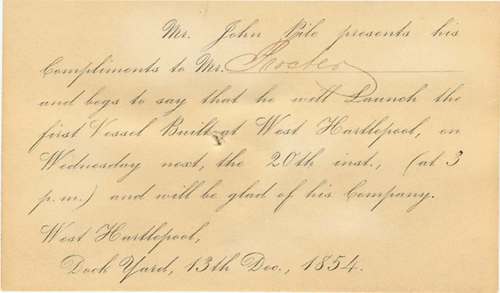 Mr. John Pile presents his
Compliments to Mr. Procter
and begs to say that he will Launch the
first Vessel Built at West Hartlepool, on
Wednesday next, the 20th inst., (at 3
p.m.) and will be glad of his Company.
West Hartlepool,
Dock Yard, 13th Dec., 1854.